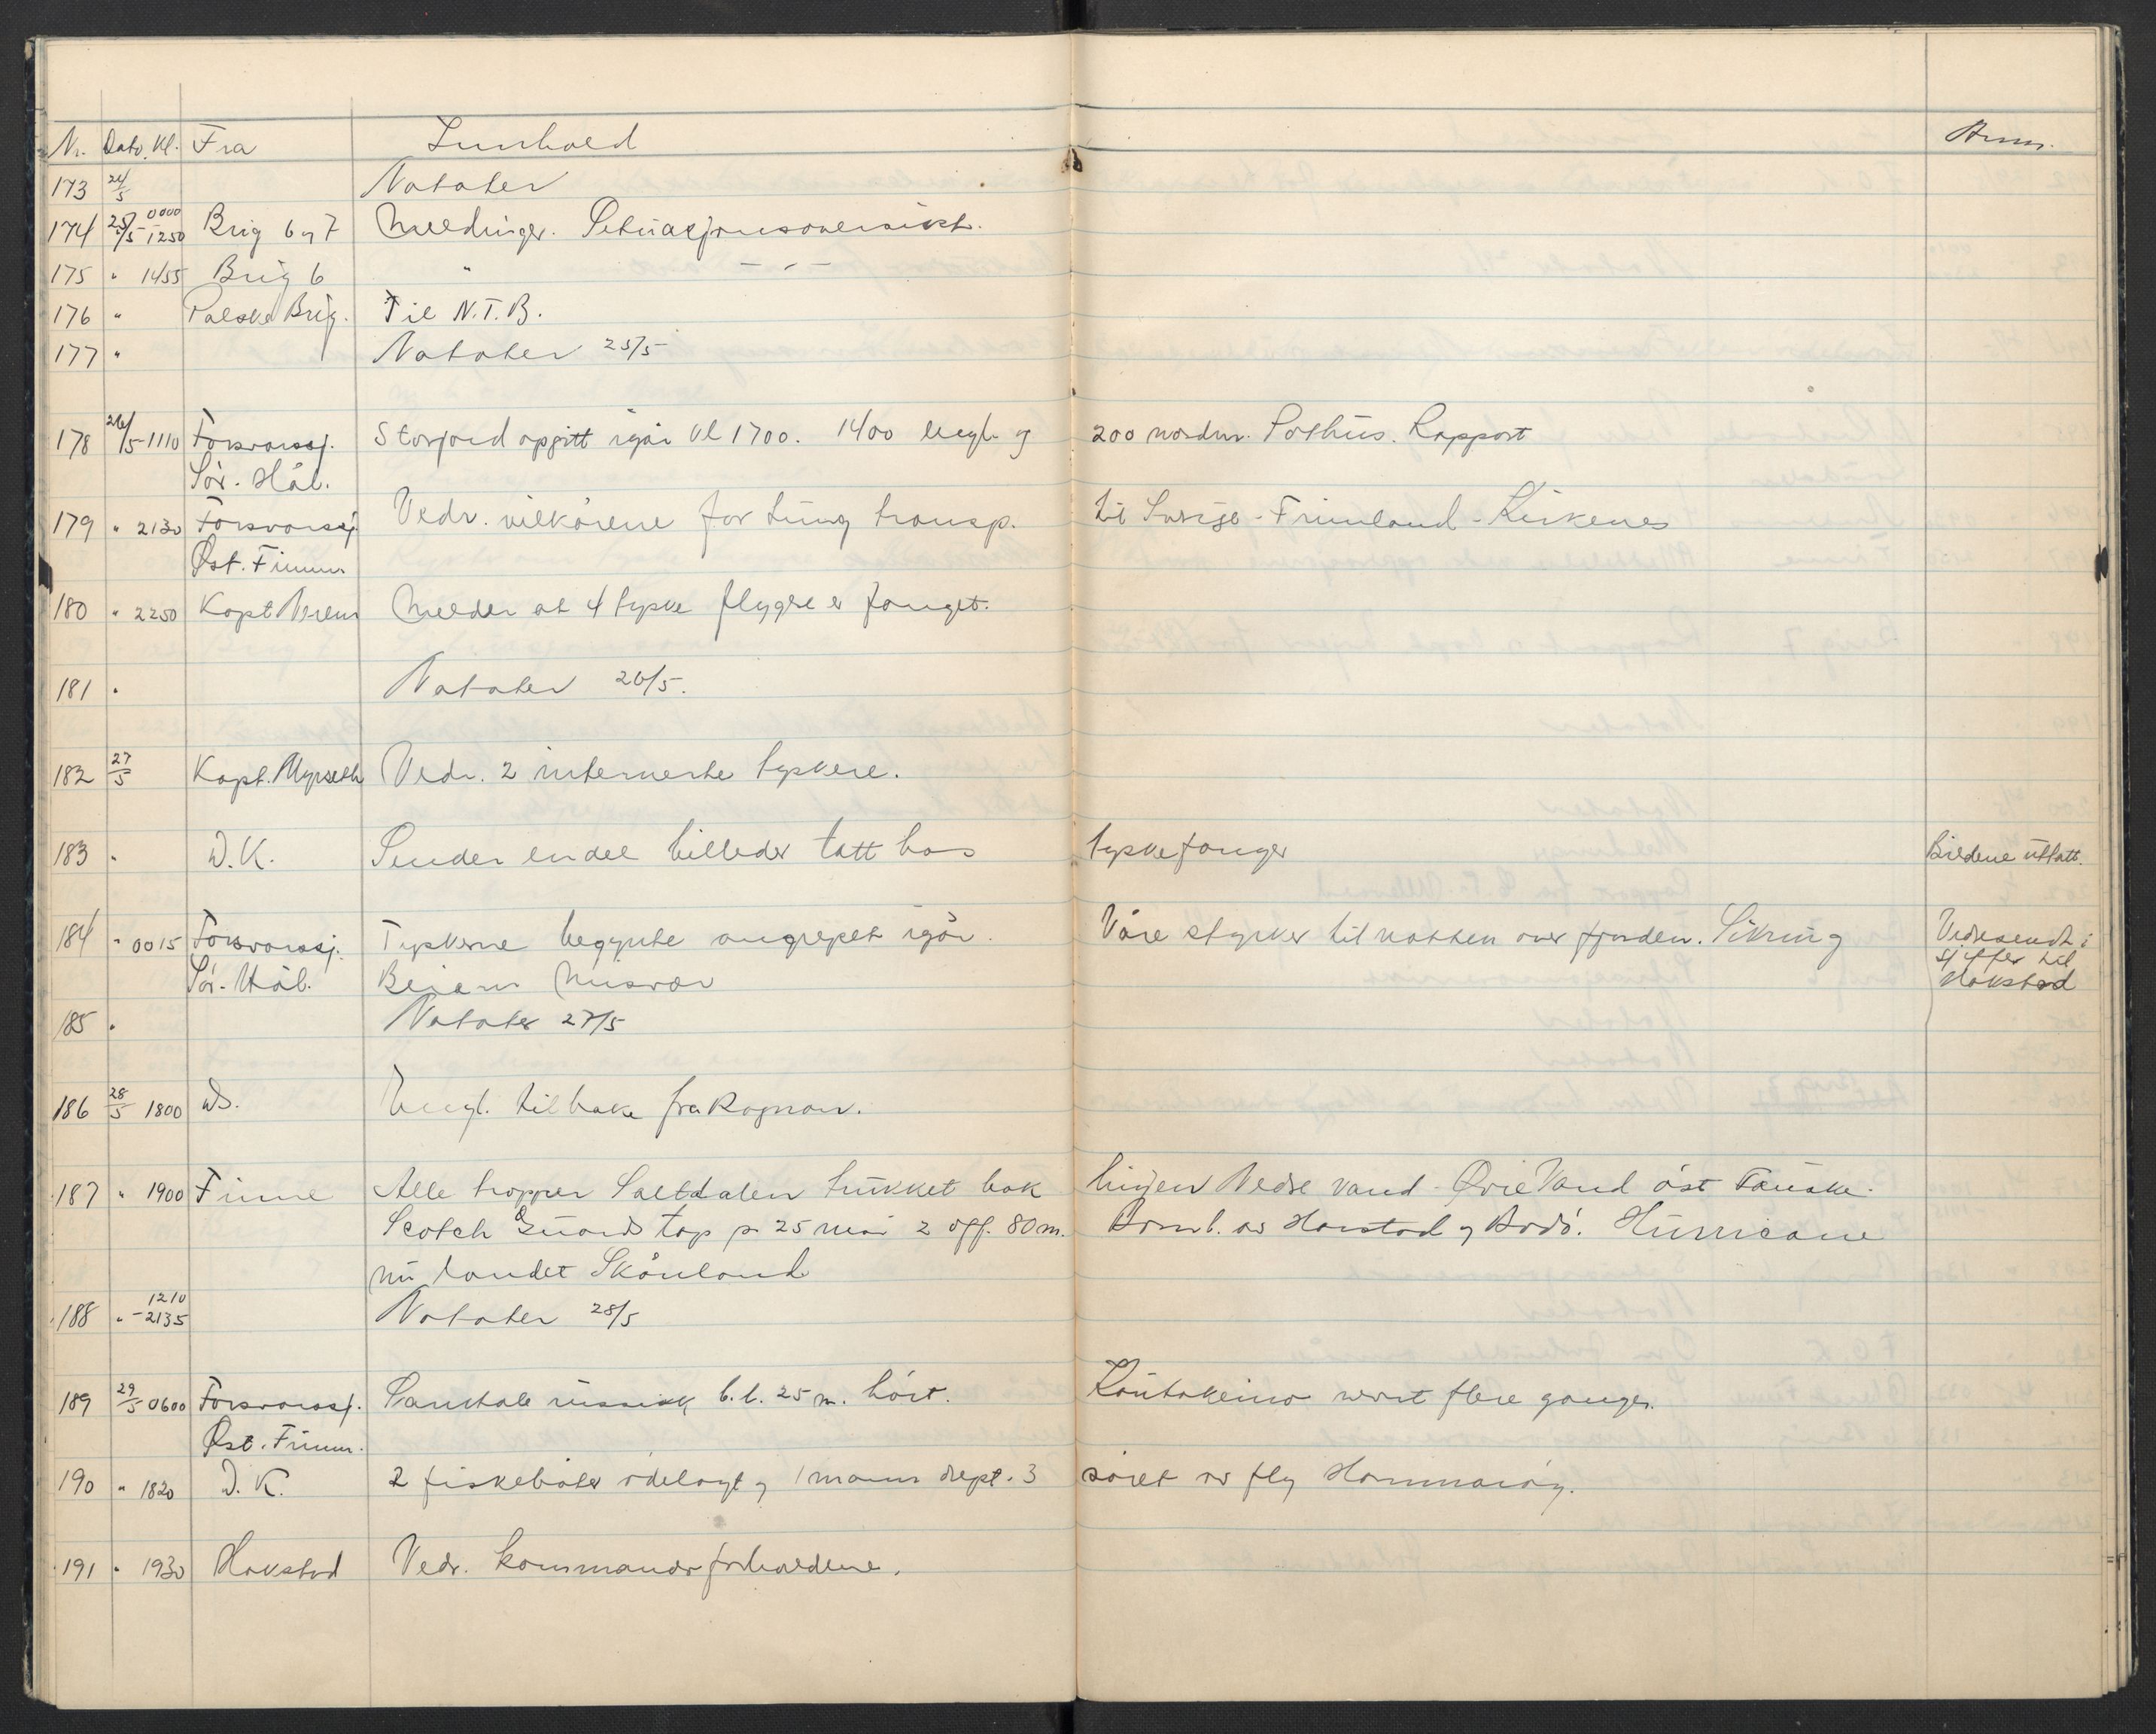 Nr. Dato. Kl. Fra Innhold Anm.
173 24/5 Notater
174 25/5 0000 - 1250 Brig 6 og 7 Meldinger. Situasjonsoversikt.
175 " 1455 Brig 6 " — " —
176 " Polske Brig. Til N.T.B.
177 " Notater 25/5
178 26/5 - 1110 Forsvarssj. Storjord opgitt igår kl 1700. 1400 engl. og 200 nordm. Pothus. Rapport
Sør-Hål.
179 " 2130 Forsvarssj. Vedr. vilkårene for tung transp. til Sverige - Finnland - Kirkenes
Øst. Finnm.
180 " 2250 Kapt. Melder at 4 tyske flygere er fanget.
181 " Notater 26/5.
182 27/5 Kapt. Myrseth Vedr. 2 internerte tyskere.
183 " D.K. Sender endel billeder tatt hos tyske fanger Bildene uttatt.
184 " 0015 Forsvarssj. Tyskerne begynte angrepet igår. Våre styrker til natten over fjorden. Sikring Videresendt i
Sør-Hål. Beiarn Misvær siffer til
Hokstad
185 " Notater 27/5
186 28/5 1800 Engl. tilbake fra Rognan.
187 " 1900 Finne Alle tropper Saltdalen trukket bak linjen Nedre vand - Øvre Vand øst Fauske.
Scotch Guards tap pr 25 mai 2 off. 80 m. Bomb. av Harstad og Bodø. Hurricane
nu landet Skånland
188 " 1210 - 2135 Notater 28/5
189 29/5 0600 Forsvarssj. Samtale russisk b.l. 25 m. hørt. Kautokeino nevnt flere ganger.
Øst. Finnm.
190 " 1820 D.K. 2 fiskebåter ødelagt og 1 mann drept. 3 såret av fly Hammarøy.
191 " 1930 Hokstad Vedr. kommandoforholdene.